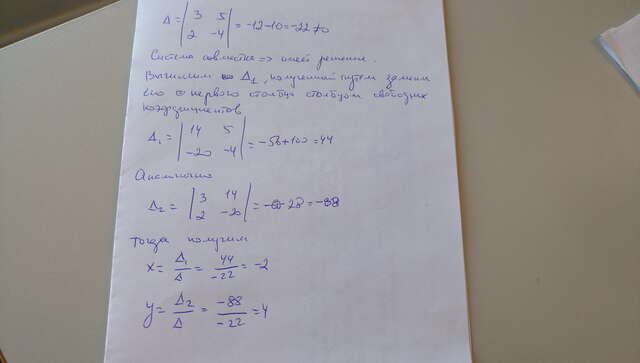 Δ = | 3 5 | = -12-10 = -22 ≠ 0
| 2 -4 |
Система совместна => имеет решение.
Вычислим Δ₁, полученный путем замены
его первого столбца столбцом свободных
коэффициентов
Δ₁ = | 14 5 | = -56+100 = 44
| -20 -4 |
Аналогично
Δ₂ = | 3 14 | = -60-28 = -88
| 2 -20 |
тогда получим
x = Δ₁/Δ = 44/-22 = -2
y = Δ₂/Δ = -88/-22 = 4